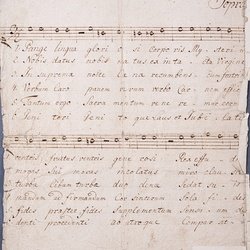 Sopra
1. Pange lingua glori o si Corpo ris My steri
2. Nobis datus nobis na tus ex in ta cta Virgine
3. In suprema nocte cæ na recumbens cum fratri
4. Verbum Caro panem verum verbo Car nem effi
5. Tantum ergo Sacra mentum ve ne re mur cern
6. Geni tori Geni to que laus et Jubi la
ventris fructus ventris gene rosi Rex effu di
moras sui moras incolatus miro clau
turbæ cibum turbæ duo denæ Se dat su
mandum ad firmandum Cor sincerum Sola fi de
fides præstet fides Supplementum Sensu um
denti procedenti ab utroque Compar sit